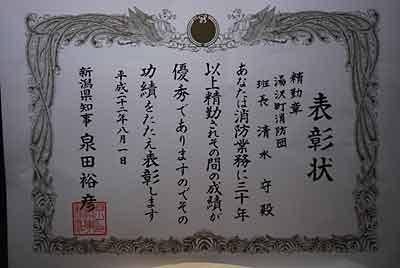 表彰状
精勤章
湯沢町消防団
班長 清水 守 殿
あなたは消防業務に三十年
以上精勤されその間の成績が
優秀でありますのでその
功績をたたえ表彰します
平成二十二年八月一日
新潟県知事 泉田裕彦